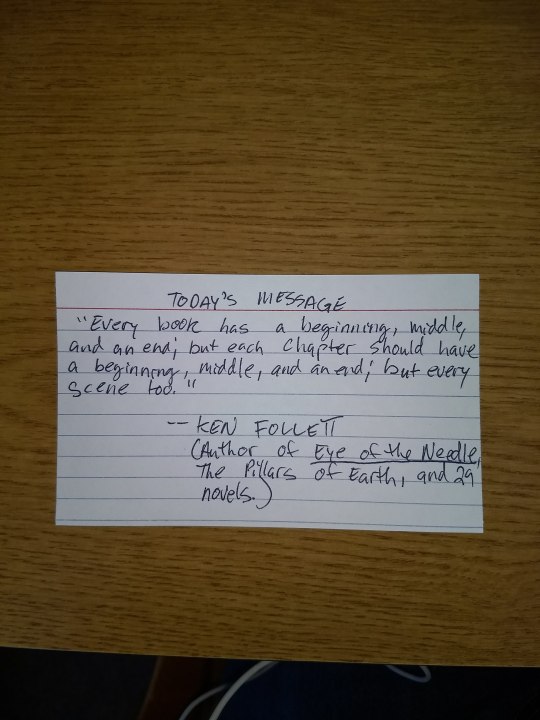 TODAY'S MESSAGE
"Every book has a beginning, middle,
and an end; but each chapter should have
a beginning, middle, and an end; but every
scene too."
-- KEN FOLLETT
(Author of Eye of the Needle,
The Pillars of Earth, and 29
novels.)